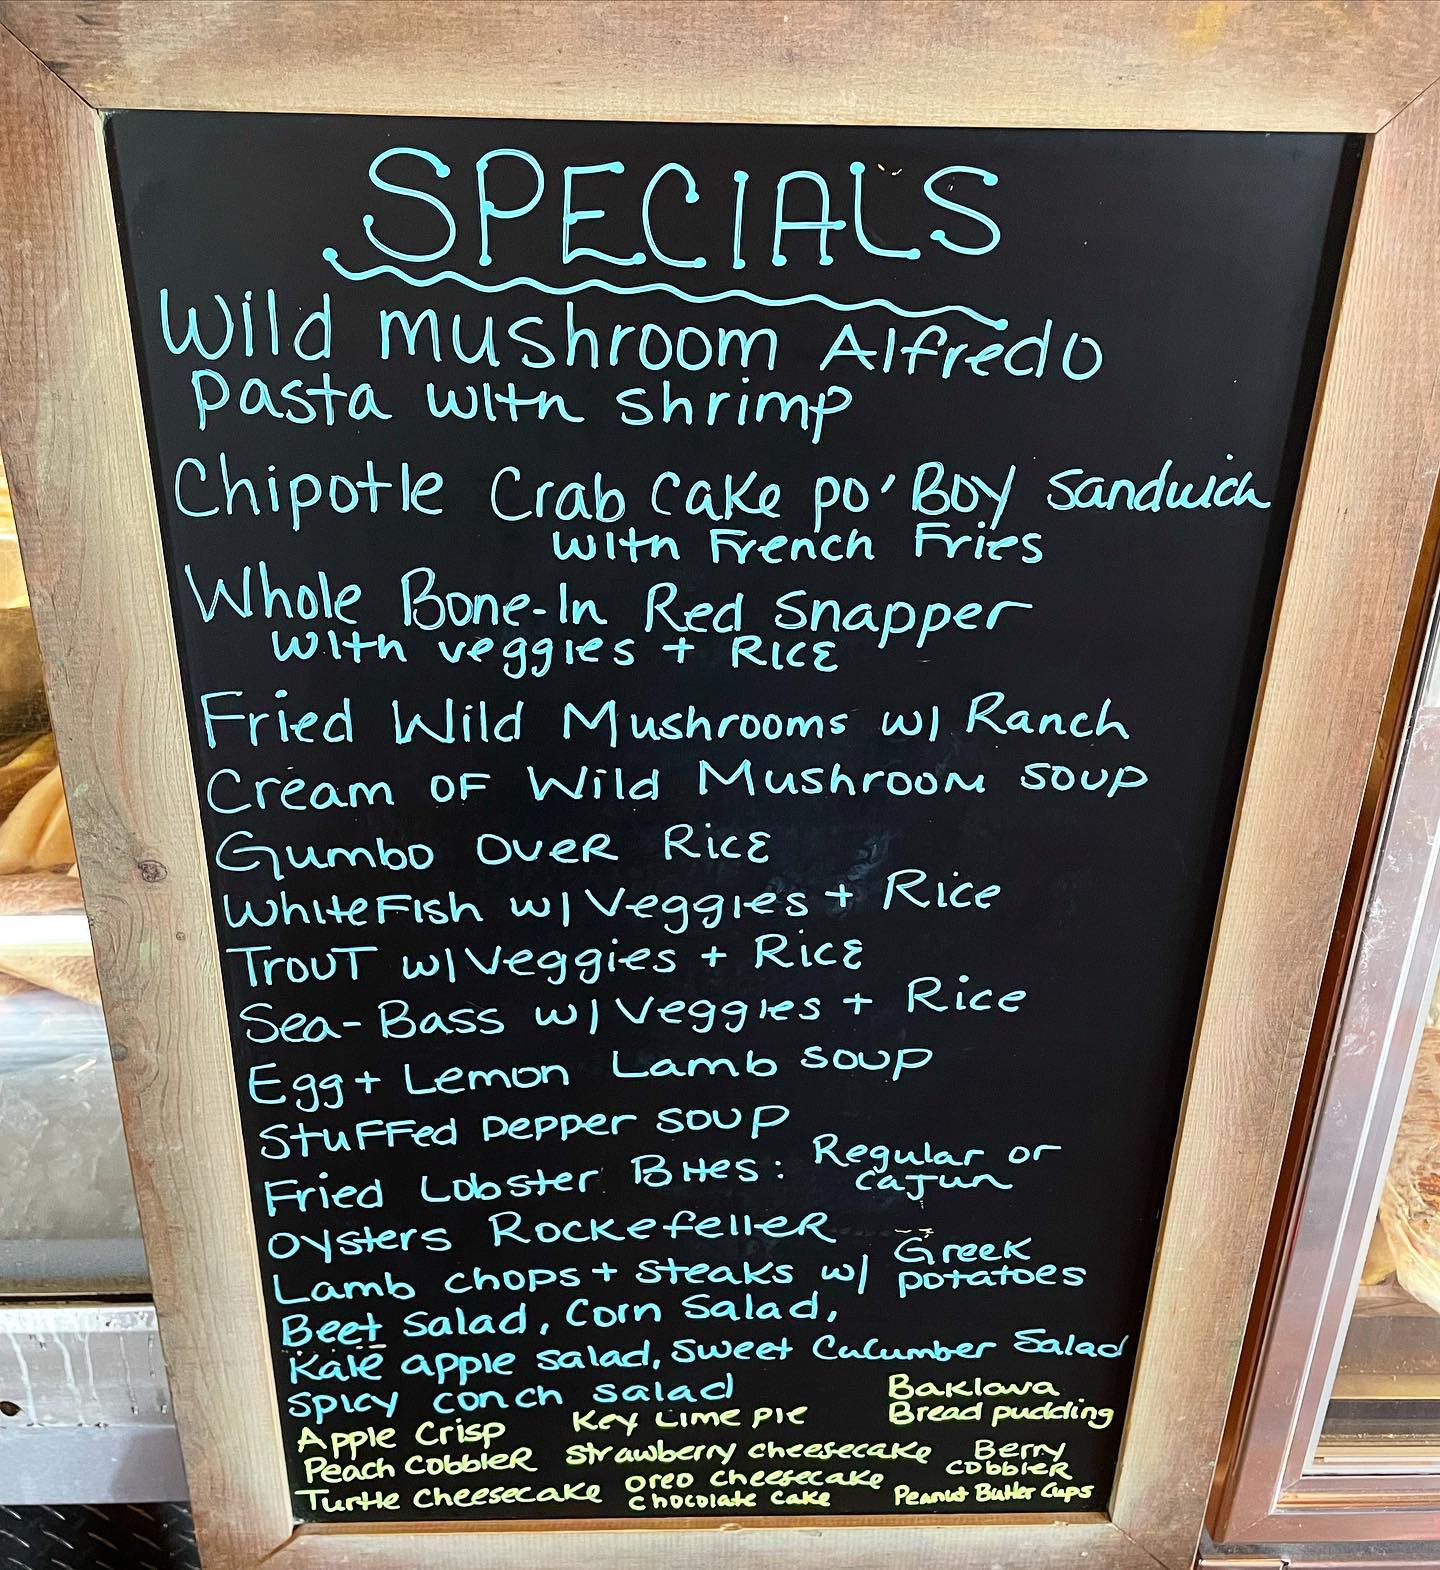 SPECIALS
Wild mushroom Alfredo
pasta with shrimp
Chipotle Crab Cake po' Boy Sandwich
with French Fries
Whole Bone-In Red Snapper
with veggies + Rice
Fried Wild Mushrooms w/ Ranch
Cream OF Wild Mushroom soup
Gumbo over Rice
WhiteFish w/ Veggies + Rice
Trout w/ Veggies + Rice
Sea-Bass w/ Veggies + Rice
Egg + Lemon Lamb soup
Stuffed pepper soup
Fried Lobster Bites: Regular or
cajun
Oysters Rockefeller
Lamb chops + steaks w/ Greek
potatoes
Beet Salad, Corn Salad,
Kale apple salad, sweet Cucumber Salad
spicy conch salad
Apple Crisp Key Lime pie Baklava
Bread pudding
Peach Cobbler strawberry cheesecake Berry
cobbler
Turtle Cheesecake oreo cheesecake
Chocolate Cake Peanut Butter Cups